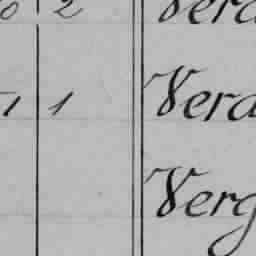 0 2 Vera
1 1 Vera
Verg